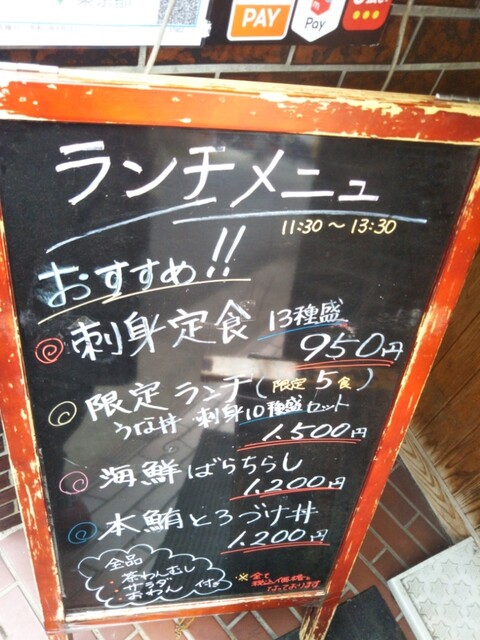 PAY
Pay
ランチメニュー
11:30～13:30
おすすめ!!
刺身定食 13種盛
950円
限定ランチ(限定5食)
うな丼 刺身10種盛セット
1,500円
海鮮ばらちらし
1,200円
本鮪とろづけ丼
1,200円
全品
・茶わんむし
・サラダ
付き
※全て
税込価格と
なっております